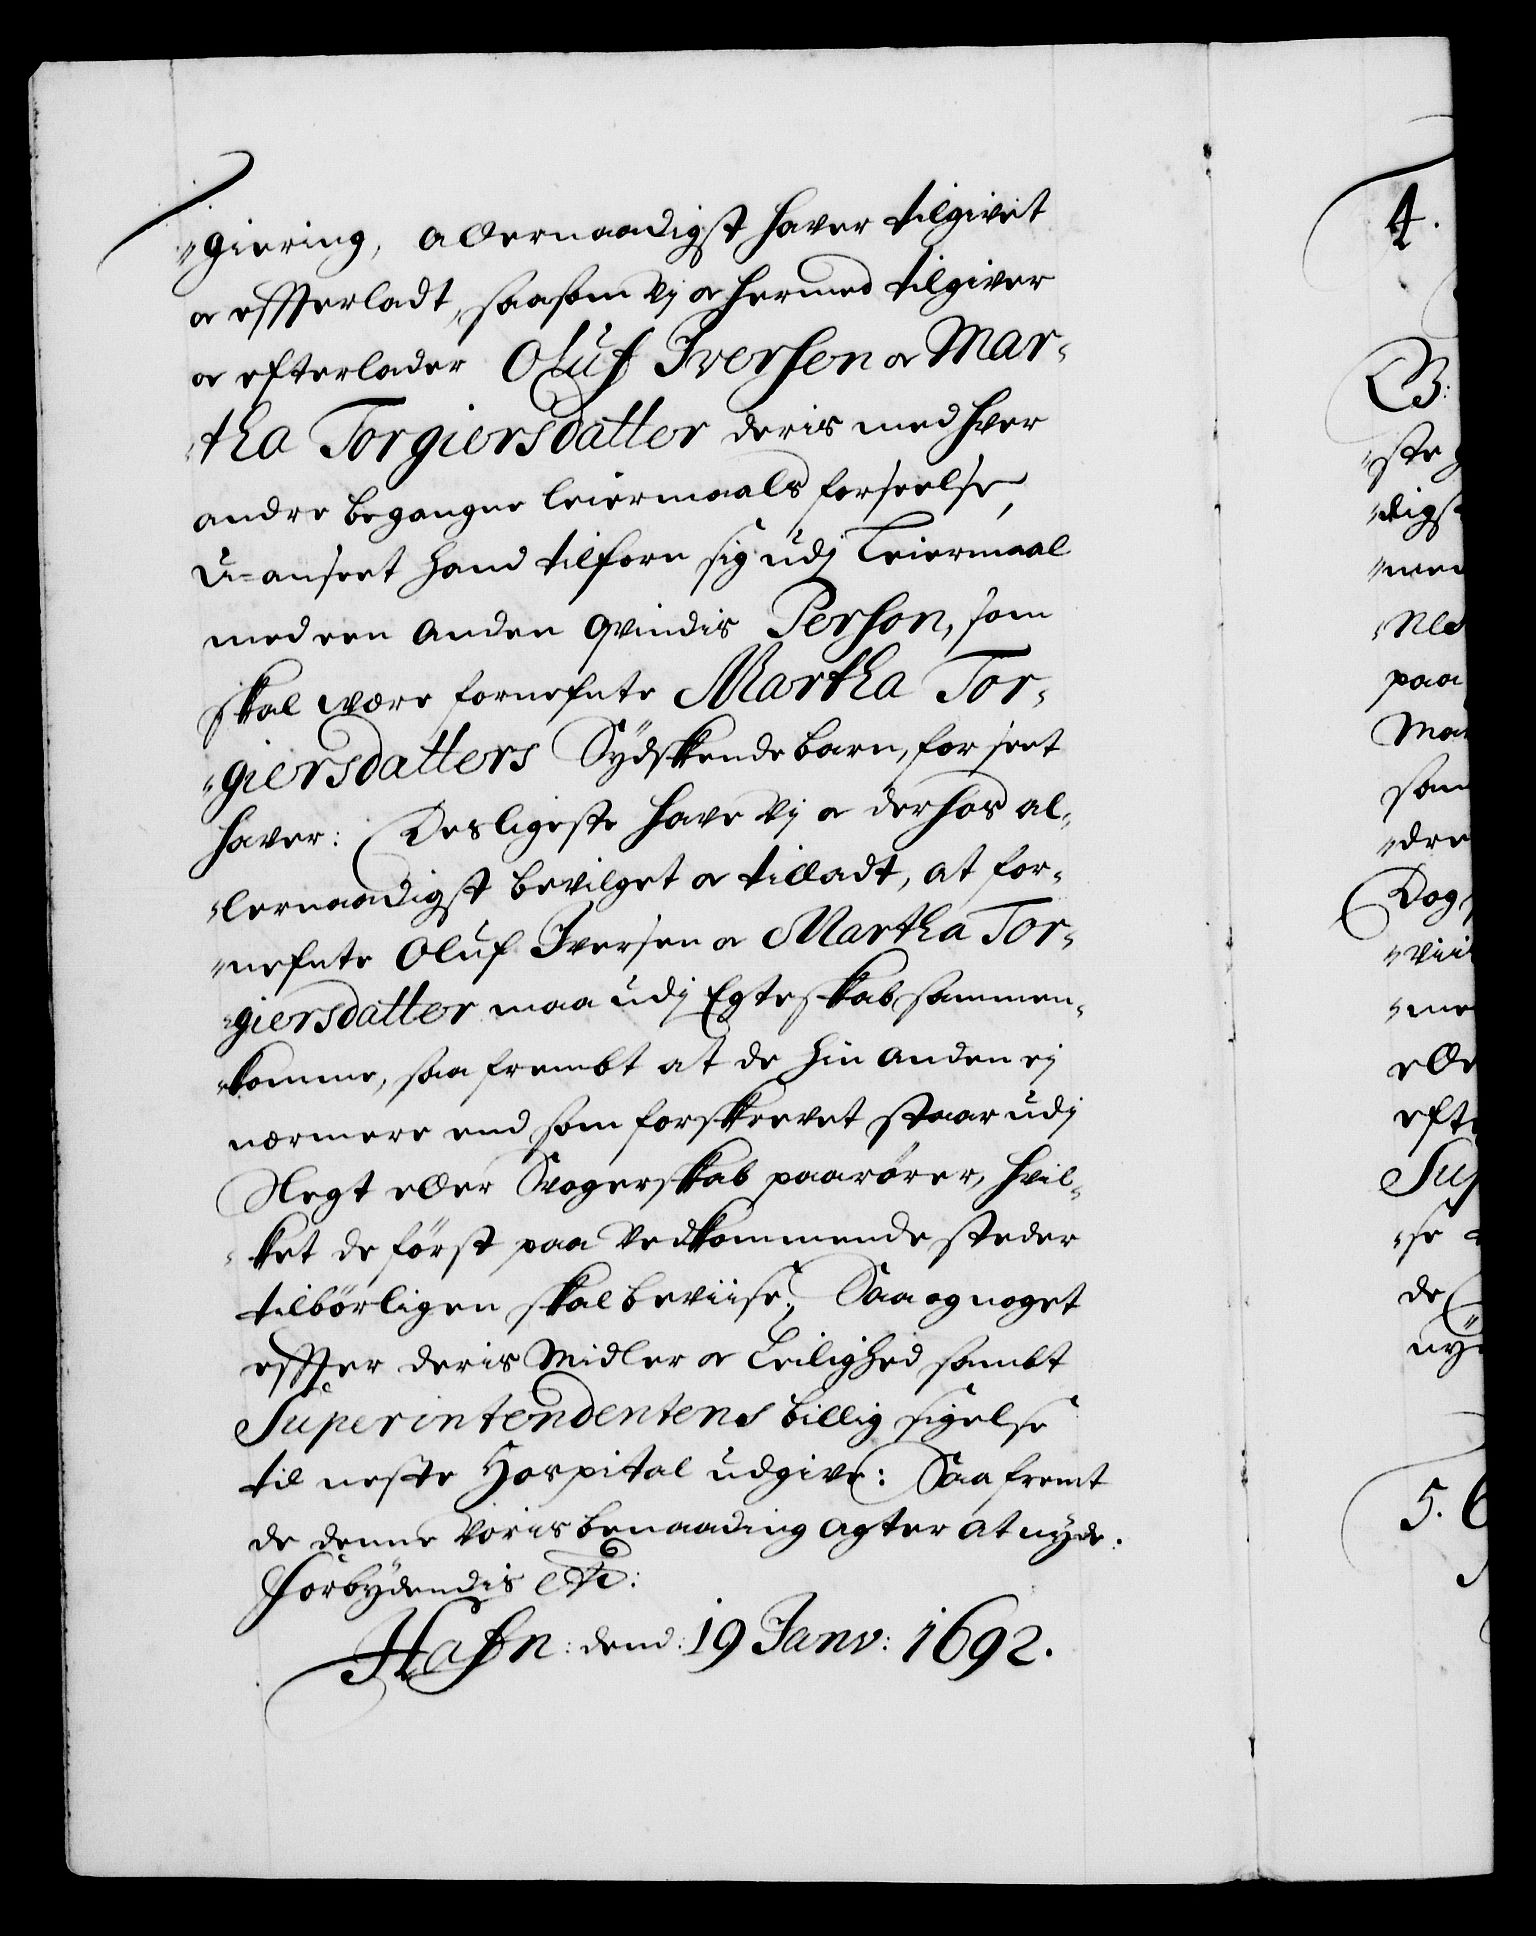 "giering, allernaadigst haver tilgivet
og effterladt, saasom Vj og hermed tilgiver
og efterlader Oluf Iversen og Mar-
tha Torgiersdatter deris med hver
andre begangne leiermaals forseelse,
U-anseet hand tilforn sig udj Leiermaal
med een anden qvindis Person, som
skal være fornefnte Martha Tor-
"giersdatters Sydskendebarn, forseet
haver: Desligeste have Vj og derhos al-
"lernaadigst bevilget og tilladt, at for-
"nefnte Oluf Iversen og Martha Tor-
"giersdatter maa udj Egteskab sammen-
"komme, saafrembt at de hin anden ej
nærmere end som forskrevet staar udj
Slegt eller Svogerskab paarører, hvil-
"ket de först paa Vedkommende steder
tilbörligen skal beviise; Saa og noget
effter deris Midler og Leilighed sambt
Superintendentens billig sigelse
til neste Hospital udgive: Saafremt
de denne Voris benaading agter at nyde.
Forbydendis etc:
Hafn: dend: 19 Janv: 1692.
4.
B:
"ste
"digst
"med
paa
som
"dre
Dog
"vii
"me
elle
efte
Sup
"se
de
nyd
5.